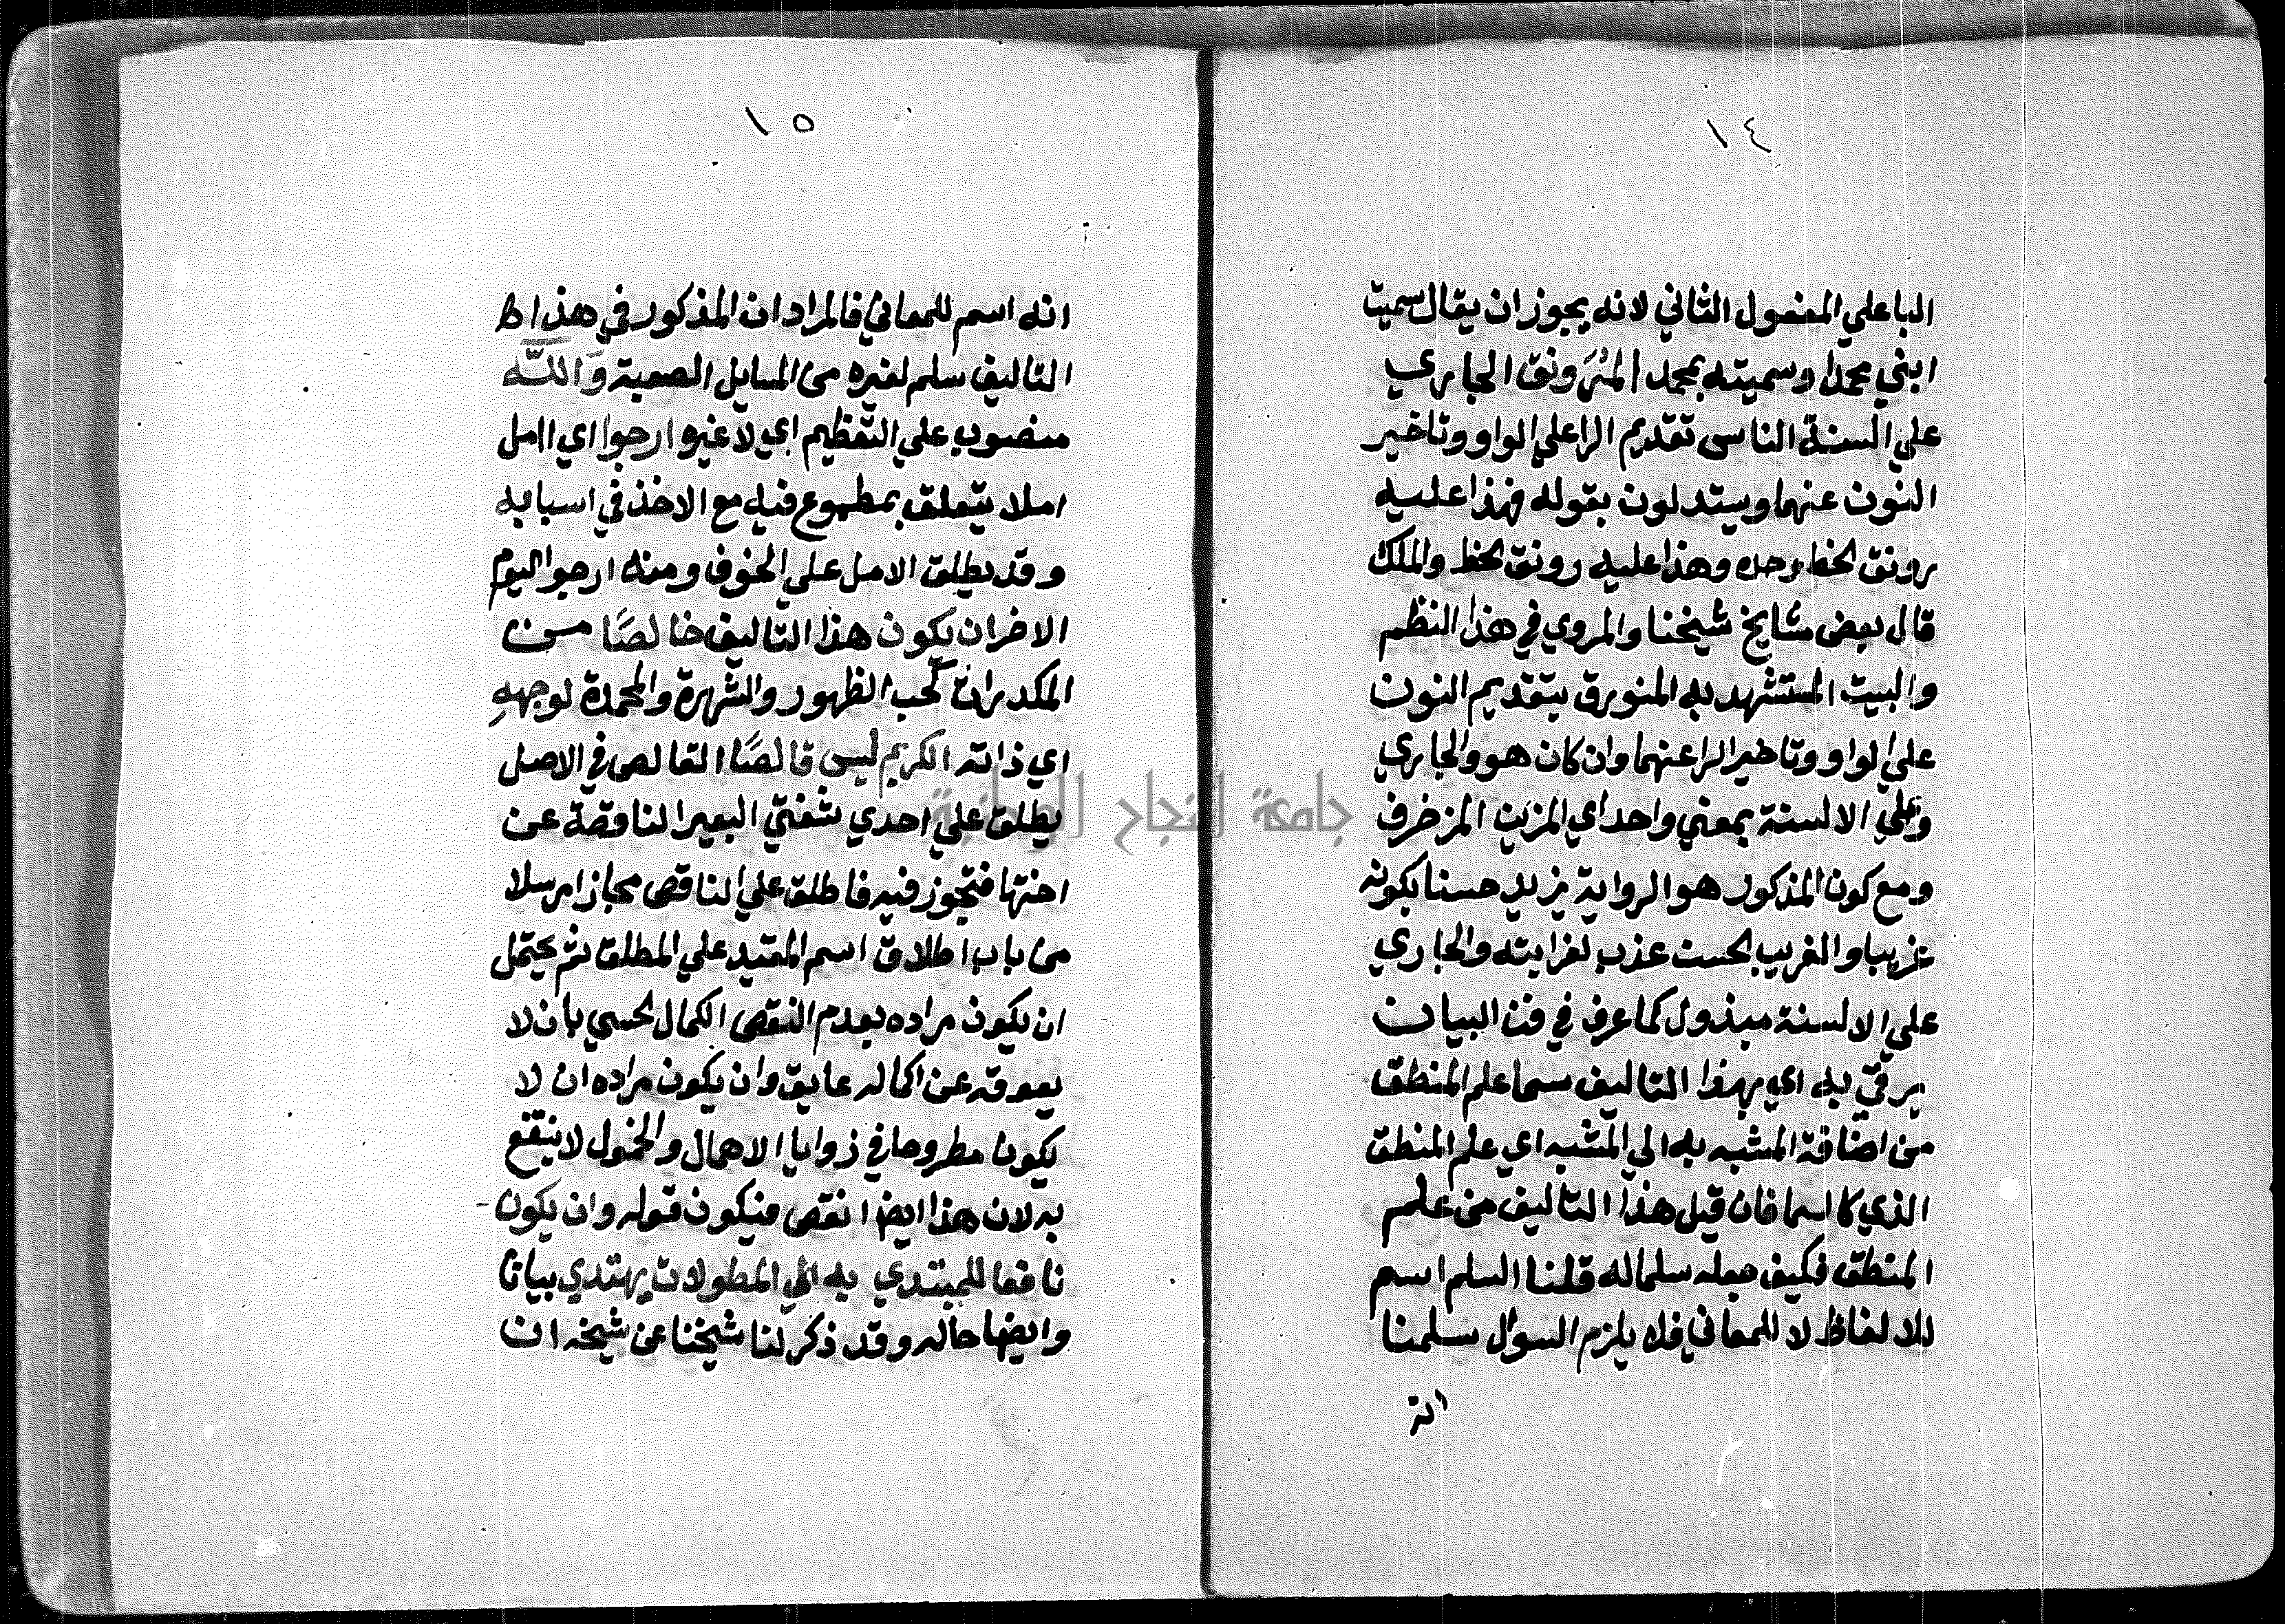 ١٤
البا علي المفعول الثاني لانه يجوز ان يقال سميت
ابني محمدا وسميته بمحمد المُرَونق الجاري
علي السنة الناس تقديم الرا علي الواو وتاخير
النون عنهما ويستدلون بقوله فهذا عليه
رونق لخط وحده وهذا عليه رونق لخط والملك
قال بعض مشايخ شيخنا والمروي في هذا النظم
والبيت المستشهد به المنورق بتقديم النون
علي الواو وتاخير الرا عنهما وان كان هو والجاري
وعلي الالسنة بمعني واحد اي المزين المزخرف
ومع كون المذكور هو الرواية يزيد حسنا بكونه
غريبا والغريب بحست عذب لغرابته والجاري
علي الالسنة مبذول كما عرف في فن البيان
يرقي به اي بهذا التاليف سما علم المنطق
من اضافة المشبه به الي المشبه اي علم المنطق
الذي كالسما فان قيل هذا التاليف من علم
المنطق فكيف جعله سلما له قلنا السلم اسم
للالفاظ لا للمعاني فلا يلزم السؤال سلمنا
انه
١٥
انه اسم للمعاني فالمراد ان المذكور في هذا ط
التاليف سلم لغيره من المسايل الصعبة وَاللّه
منصوب علي التعظيم اي لا غيره ارجوا اي اامل
املا يتعلق بمطموع فيه مع الاخذ في اسبابه
وقد يطلق الامل علي الخوف ومنه ارجوا اليوم
الاخر ان يكون هذا التاليف خالصًا من
المكدرات كحب الظهور والشهرة والمحمدة لوجههِ
اي ذاته الكريم ليس قالصًا القالص في الاصل
يطلق علي احدي شفتي البعير الناقصة عن
اختها فتجوز فيه فاطلق علي الناقص مجازا مرسلا
من باب اطلاق اسم المقيد علي المطلق ثم يحتمل
ان يكون مراده بعدم النقص الكمال لحسي بان لا
يعوقه عن اكماله عايق وان يكون مراده ان لا
يكون مطروحا في زوايا الاهمال والخمول لا ينتفع
به لان هذا ايضا نقص فيكون قوله وان يكون
نافعا للمبتدي به الي المطولات يهتدي بيانا
وايضا حاله وقد ذكر لنا شيخنا عن شيخه ان
جامعة النجاح الوطنية